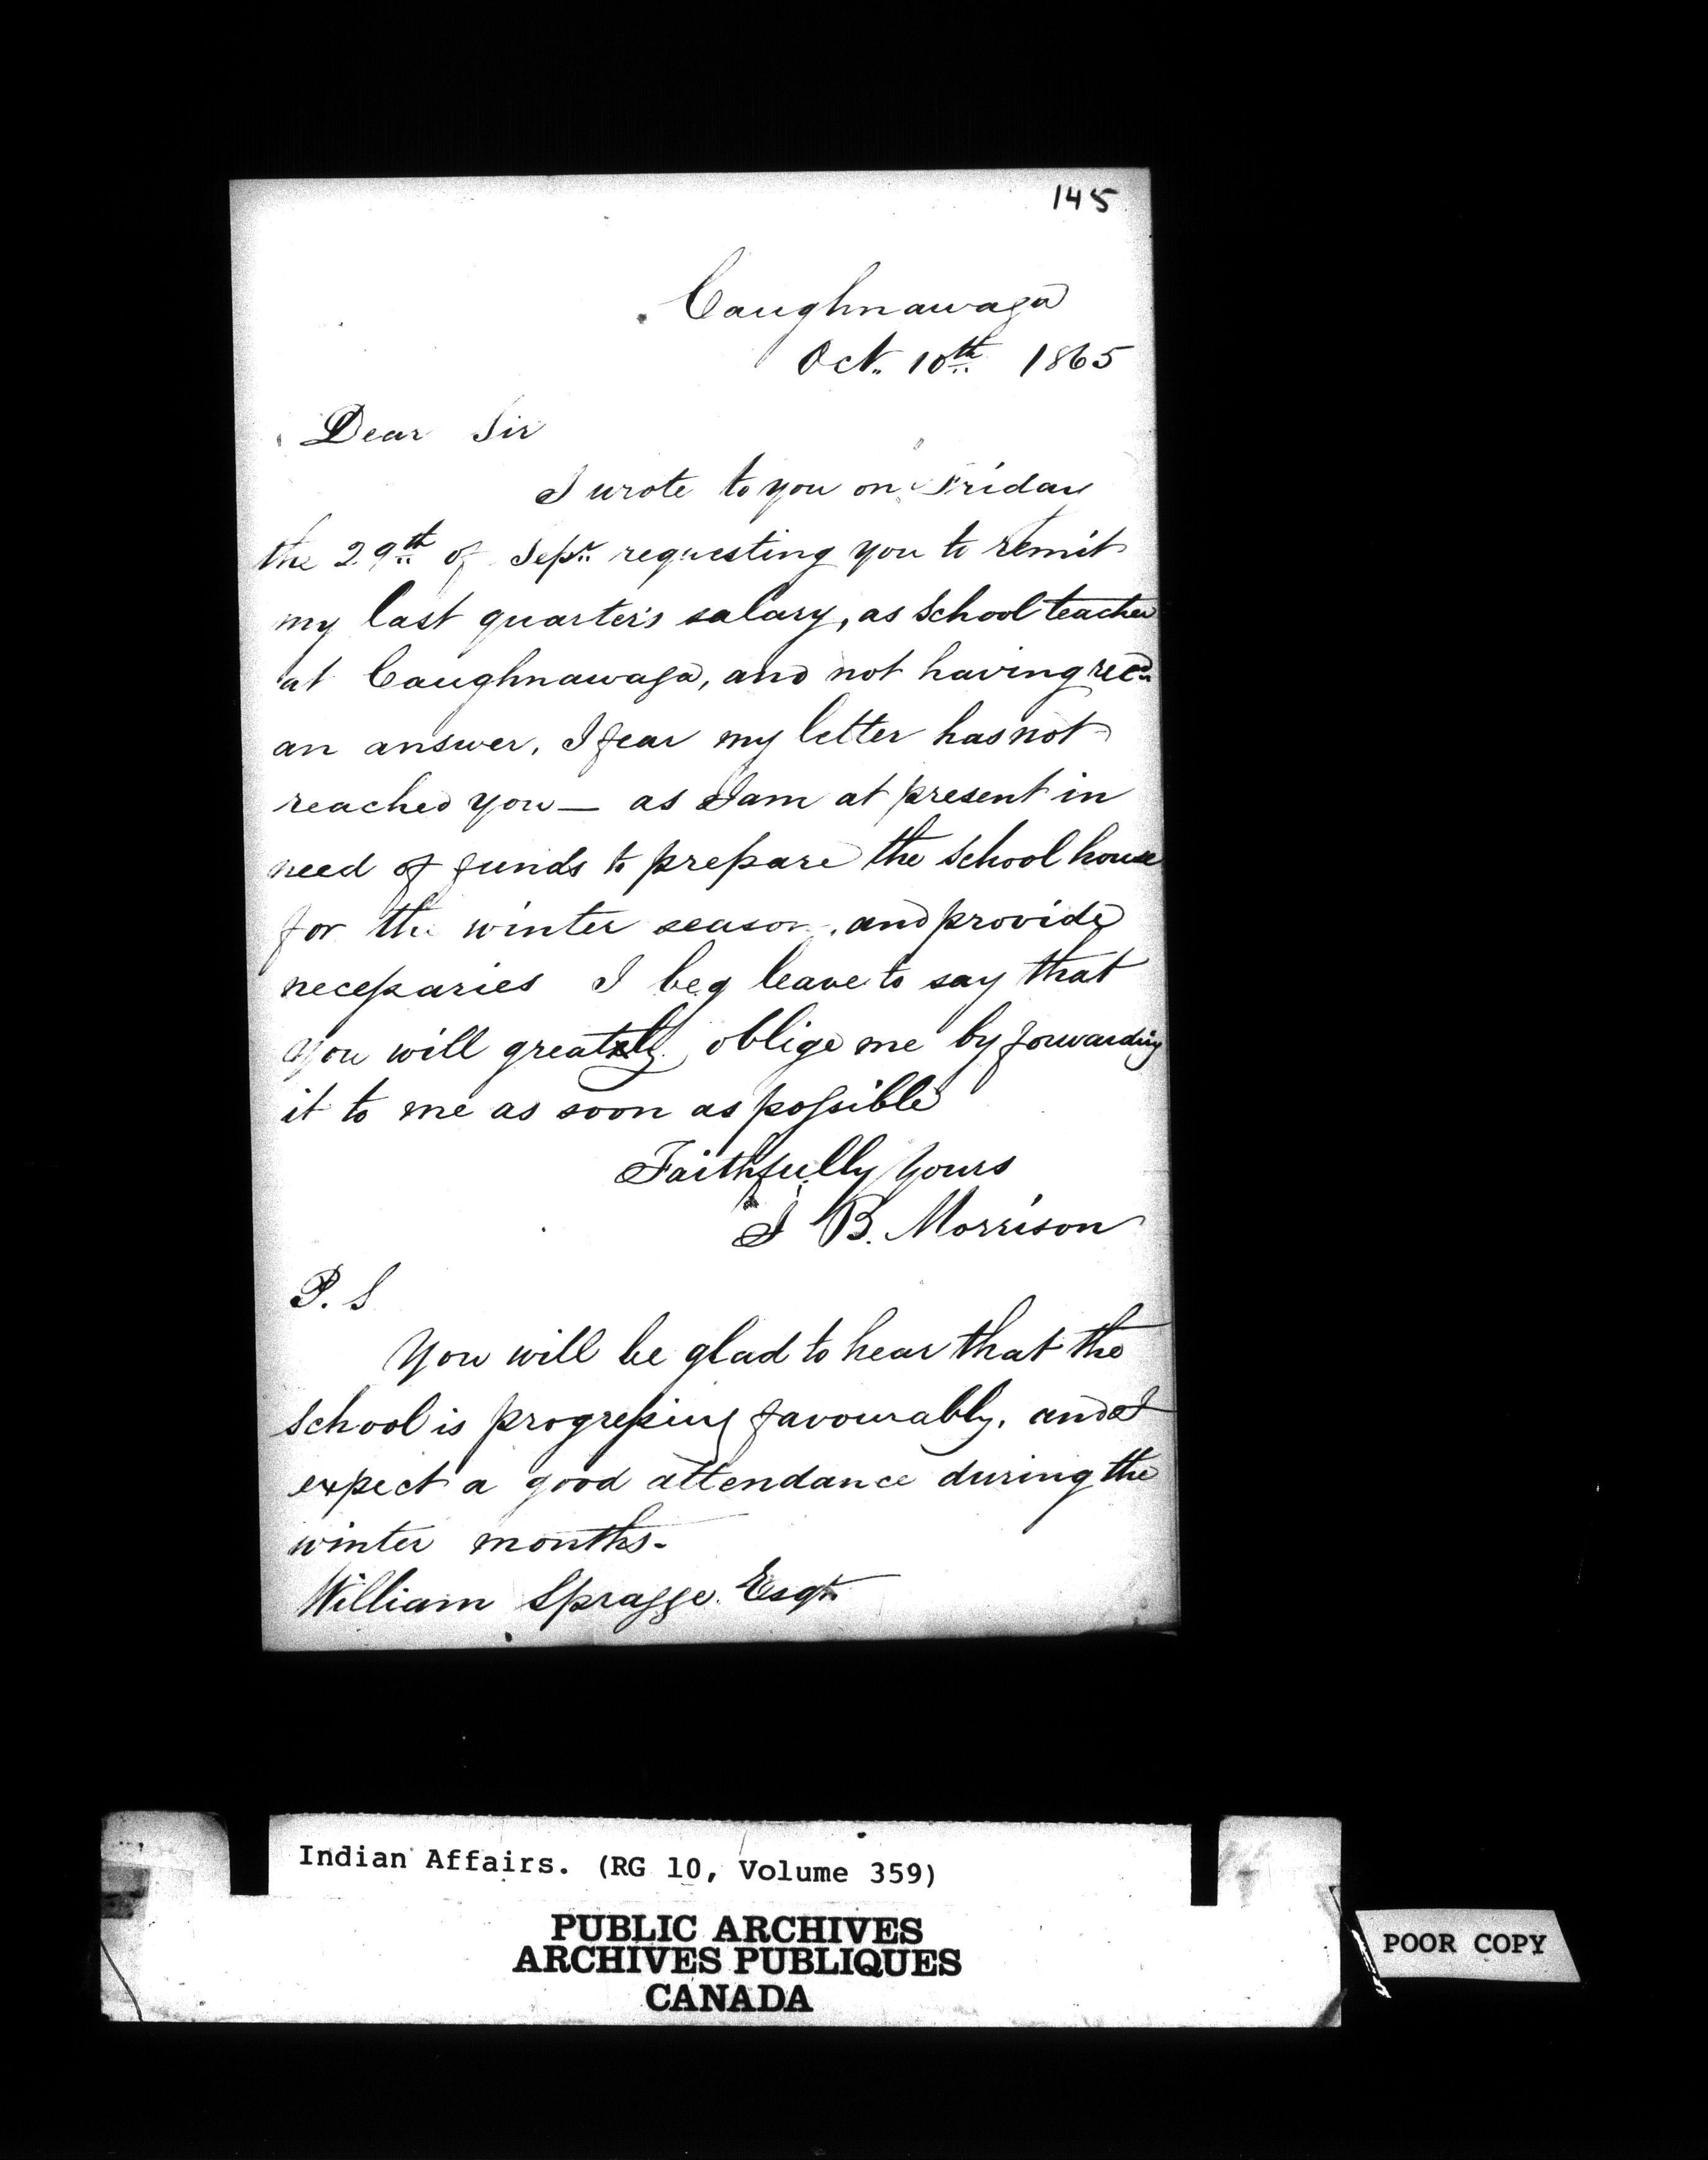 145
Caughnawaga
Oct. 10th 1865
Dear Sir
I wrote to you on Friday
the 29th of Sepr. requesting you to remit
my last quarter's salary, as School teacher
at Caughnawaga, and not having recd.
an answer, I fear my letter has not
reached you — as I am at present in
need of funds to prepare the School house
for the winter season, and provide
necessaries I beg leave to say that
you will greatly oblige me by forwarding
it to me as soon as possible
Faithfully Yours
J B. Morrison
P. S
You will be glad to hear that the
School is progressing favourably, and I
expect a good attendance during the
winter months.
William Spragge Esqr.
Indian Affairs. (RG 10, Volume 359)
PUBLIC ARCHIVES
ARCHIVES PUBLIQUES
CANADA
POOR COPY